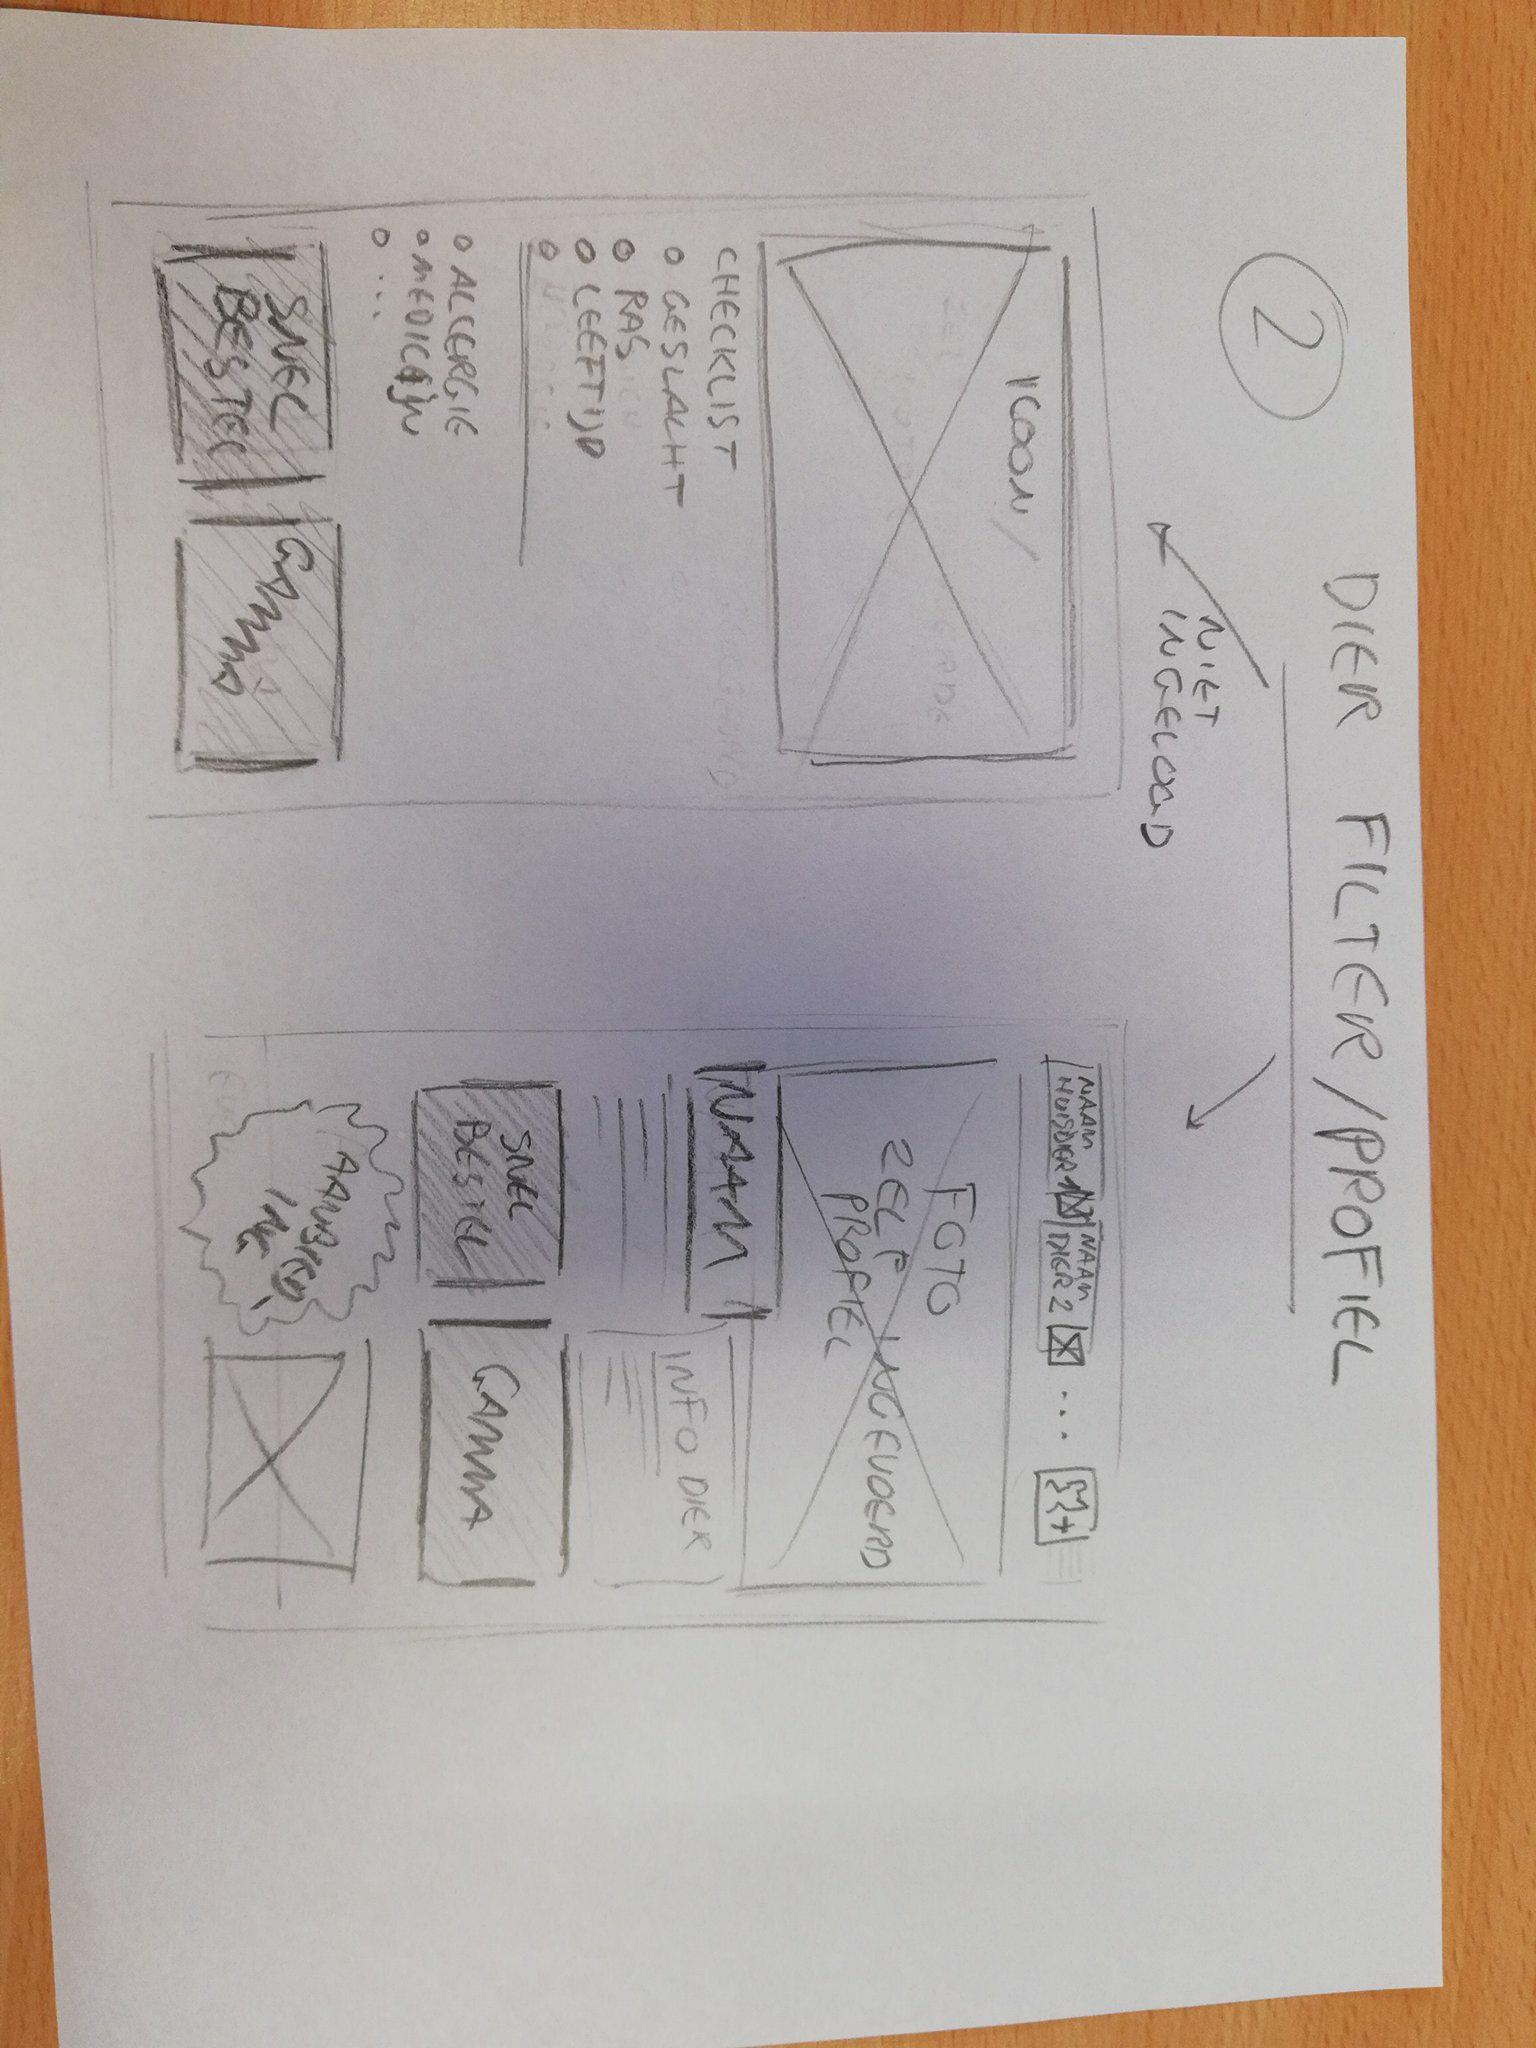 2
DIER FILTER/PROFIEL
NIET
INGELOGD
ICOON/
CHECKLIST
GESLACHT
RAS
LEEFTIJD
ALLERGIE
MEDICIJN
...
SNEL
BESTEL
GAMMA
NAAM
HUISDIER 1
NAAM
DIER 2
...
+
FOTO
ZELF INGEVOERD
PROFIEL
NAAM
INFO DIER
SNEL
BESTEL
GAMMA
AANBIED-
ING